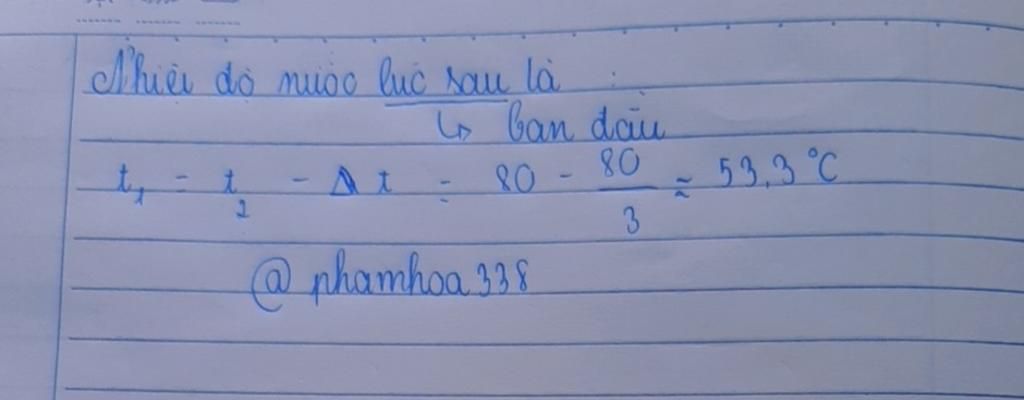 Nhiệt độ nước lúc sau là :
↳ ban đầu
t₁ = t₂ - Δt = 80 - 80/3 ≈ 53,3 °C
@phamhoa338